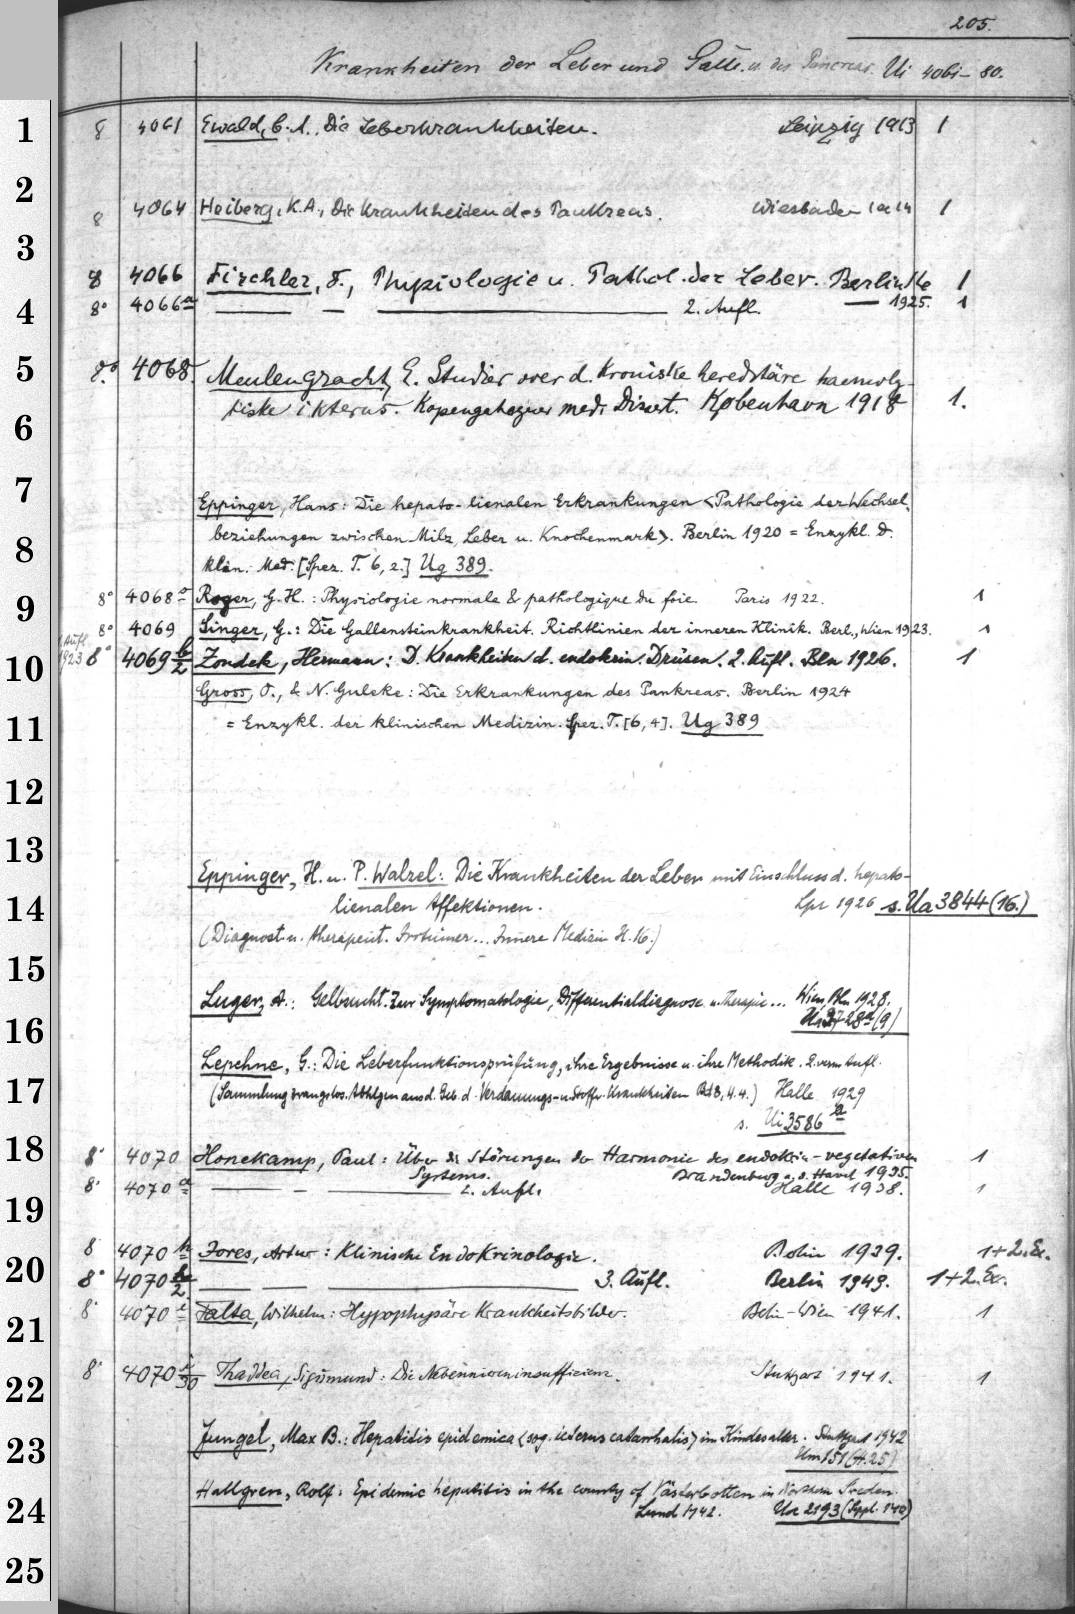 205.
Krankheiten der Leber und Galle u. des Pancreas. Ui 4061–80.
1 8 4061 Ewald, C. A., Die Leberkrankheiten. Leipzig 1913 1
2
8 4064 Heiberg, K. A., Die Krankheiten des Pankreas. Wiesbaden 1914 1
3
8 4066 Fischler, F., Physiologie u. Pathol. der Leber. Berlin 16 1
4 8° 4066a — — — 2. Aufl. — 1925. 1
5 8° 4068 Meulengracht, E. Studier over d. Kroniske heredetäre haemoly-
tiske ikterus. Kopengehagner med. Dissert. København 1918 1.
6
7 Eppinger, Hans: Die hepato-lienalen Erkrankungen <Pathologie der Wechsel-
8 beziehungen zwischen Milz, Leber u. Knochenmark>. Berlin 1920 = Enzykl. d.
klin. Med. [Spez. T. 6, 2.] Ug 389.
9 8° 4068a Roger, G. H.: Physiologie normale & pathologique du foie. Paris 1922. 1
8° 4069 Singer, G.: Die Gallensteinkrankheit. Richtlinien der inneren Klinik. Berl., Wien 1923. 1
1. Aufl. 1923
10 8° 4069 b/2 Zondek, Hermann: D. Krankheiten d. endokrin. Drüsen. 2. Aufl. Bln 1926. 1
Gross, O., & N. Guleke: Die Erkrankungen des Pankreas. Berlin 1924
11 = Enzykl. der klinischen Medizin. Spez. T. [6, 4]. Ug 389
12
13
Eppinger, H. u. P. Walzel: Die Krankheiten der Leber mit Einschluss d. hepato-
14 lienalen Affektionen. Lpz 1926 s. Ua 3844 (16.)
(Diagnost. u. therapeut. Irrtümer... Innere Medizin H. 16.)
15
Luger, A.: Gelbsucht. Zur Symptomatologie, Differentialdiagnose u. Therapie... Wien, Bln 1928.
16 Ui 3728a (9)
Lepehne, G.: Die Leberfunktionsprüfung, ihre Ergebnisse u. ihre Methodik. 2. verm. Aufl.
17 (Sammlung zwanglos. Abhlgen aus d. Geb. d. Verdauungs- u. Stoffw. Krankheiten Bd 8, H. 4.) Halle 1929
s. Ui 3586a
18 8° 4070 Honekamp, Paul: Über die Störungen der Harmonie des endokrin-vegetativen 1
Systems. Brandenburg a. d. Havel 1935.
8° 4070a — — — 2. Aufl. Halle 1938. 1
19
8° 4070h Jores, Artur: Klinische Endokrinologie. Berlin 1939. 1+2. Ex.
20 8° 4070 h/2 — — — 3. Aufl. Berlin 1949. 1+2. Ex.
21 8° 4070 Falta, Wilhelm: Hypophysäre Krankheitsbilder. Berlin-Wien 1941. 1
22 8° 4070 /50 Thaddea, Sigismund: Die Nebenniereninsuffizienz. Stuttgart 1941. 1
23 Jungel, Max B.: Hepatitis epidemica <sog. icterus catarrhalis> im Kindesalter. Stuttgart 1942
Um 151 (H. 25)
Hallgren, Rolf: Epidemic hepatitis in the county of Västerbotten in Northern Sweden.
24 Lund 1942. Ua 2193 (Suppl. 140)
25